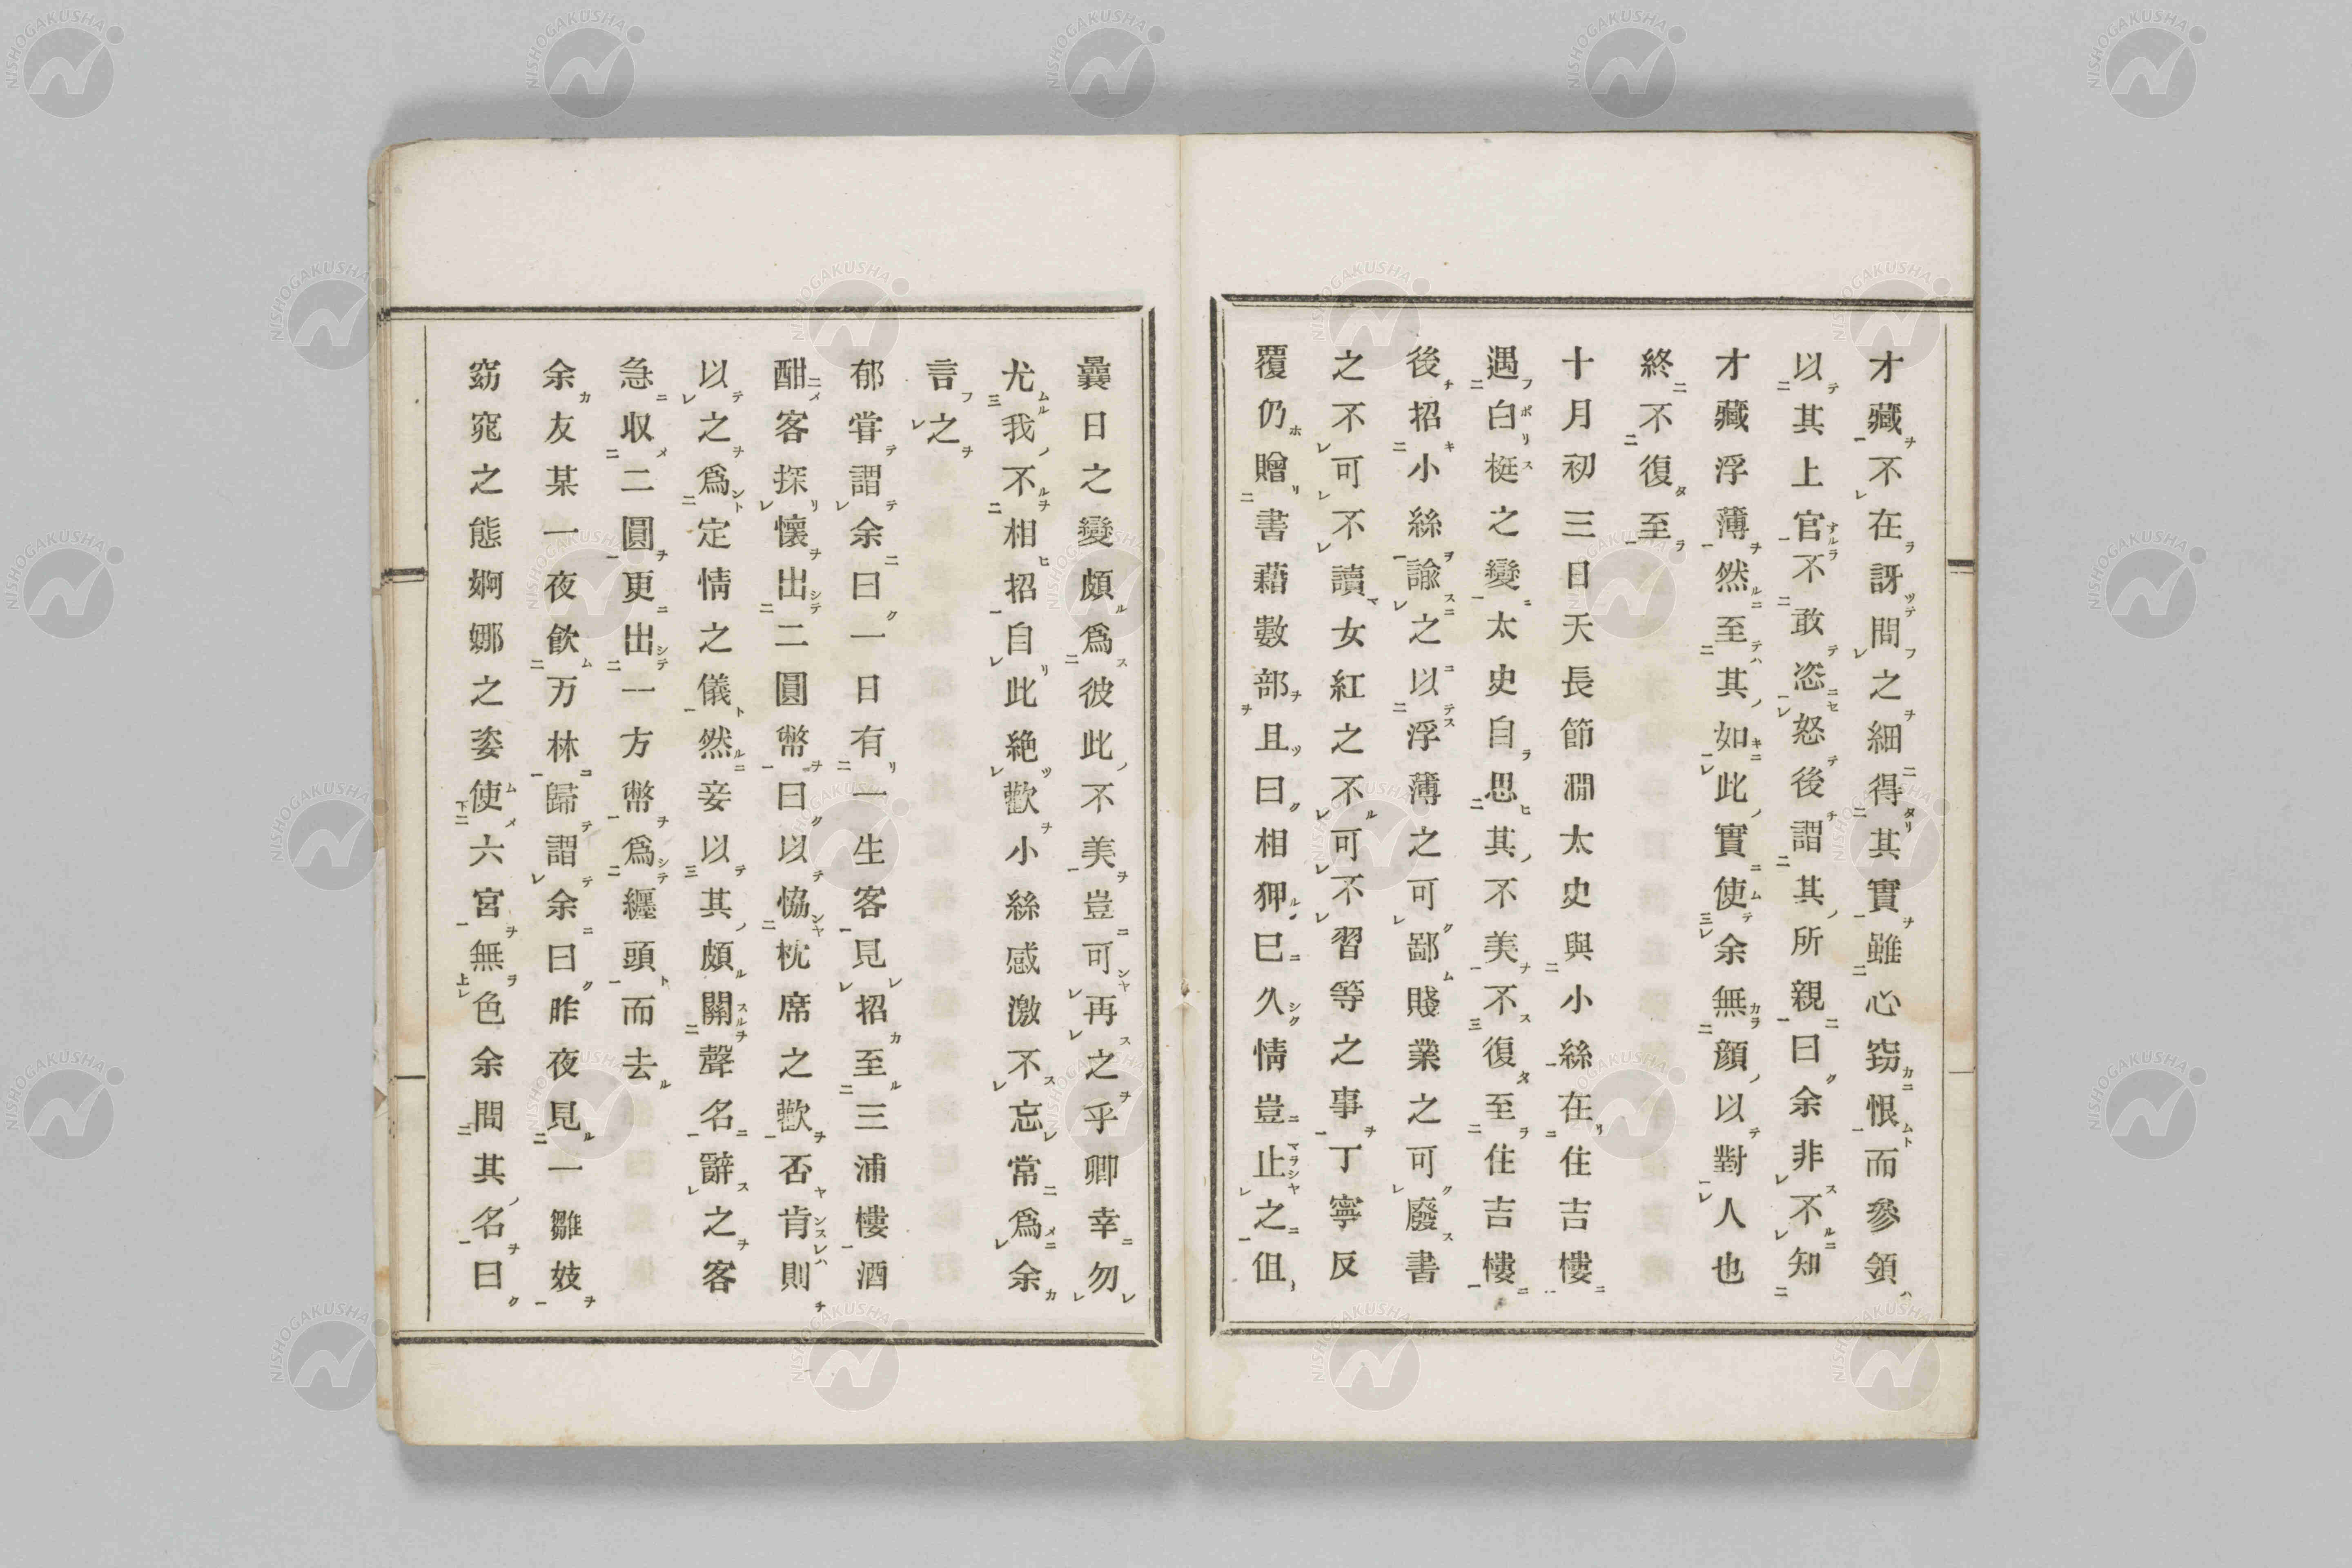 才藏不在訝問之細得其實雖心窃恨而參領
以其上官不敢恣怒後謂其所親曰余非不知
才藏浮薄然至其如此實使余無顏以對人也
終不復至
十月初三日天長節澗太史與小絲在住吉樓
遇白梃之變太史自思其不美不復至住吉樓
後招小絲諭之以浮薄之可鄙賤業之可廢書
之不可不讀女紅之不可不習等之事丁寧反
覆仍贈書藉數部且曰相狎已久情豈止之但
曩日之變頗爲彼此不美豈可再之乎卿幸勿
尤我不相招自此絶歡小絲感激不忘常爲余
言之
郁甞謂余曰一日有一生客見招至三浦樓酒
酣客探懷出二圓幣曰以恊枕席之歡否肯則
以之爲定情之儀然妾以其頗關聲名辭之客
急収二圓更出一方幣爲纒頭而去
余友某一夜飮万林歸謂余曰昨夜見一雛妓
窈窕之態婀娜之姿使六宮無色余問其名曰
NISHOGAKUSHA